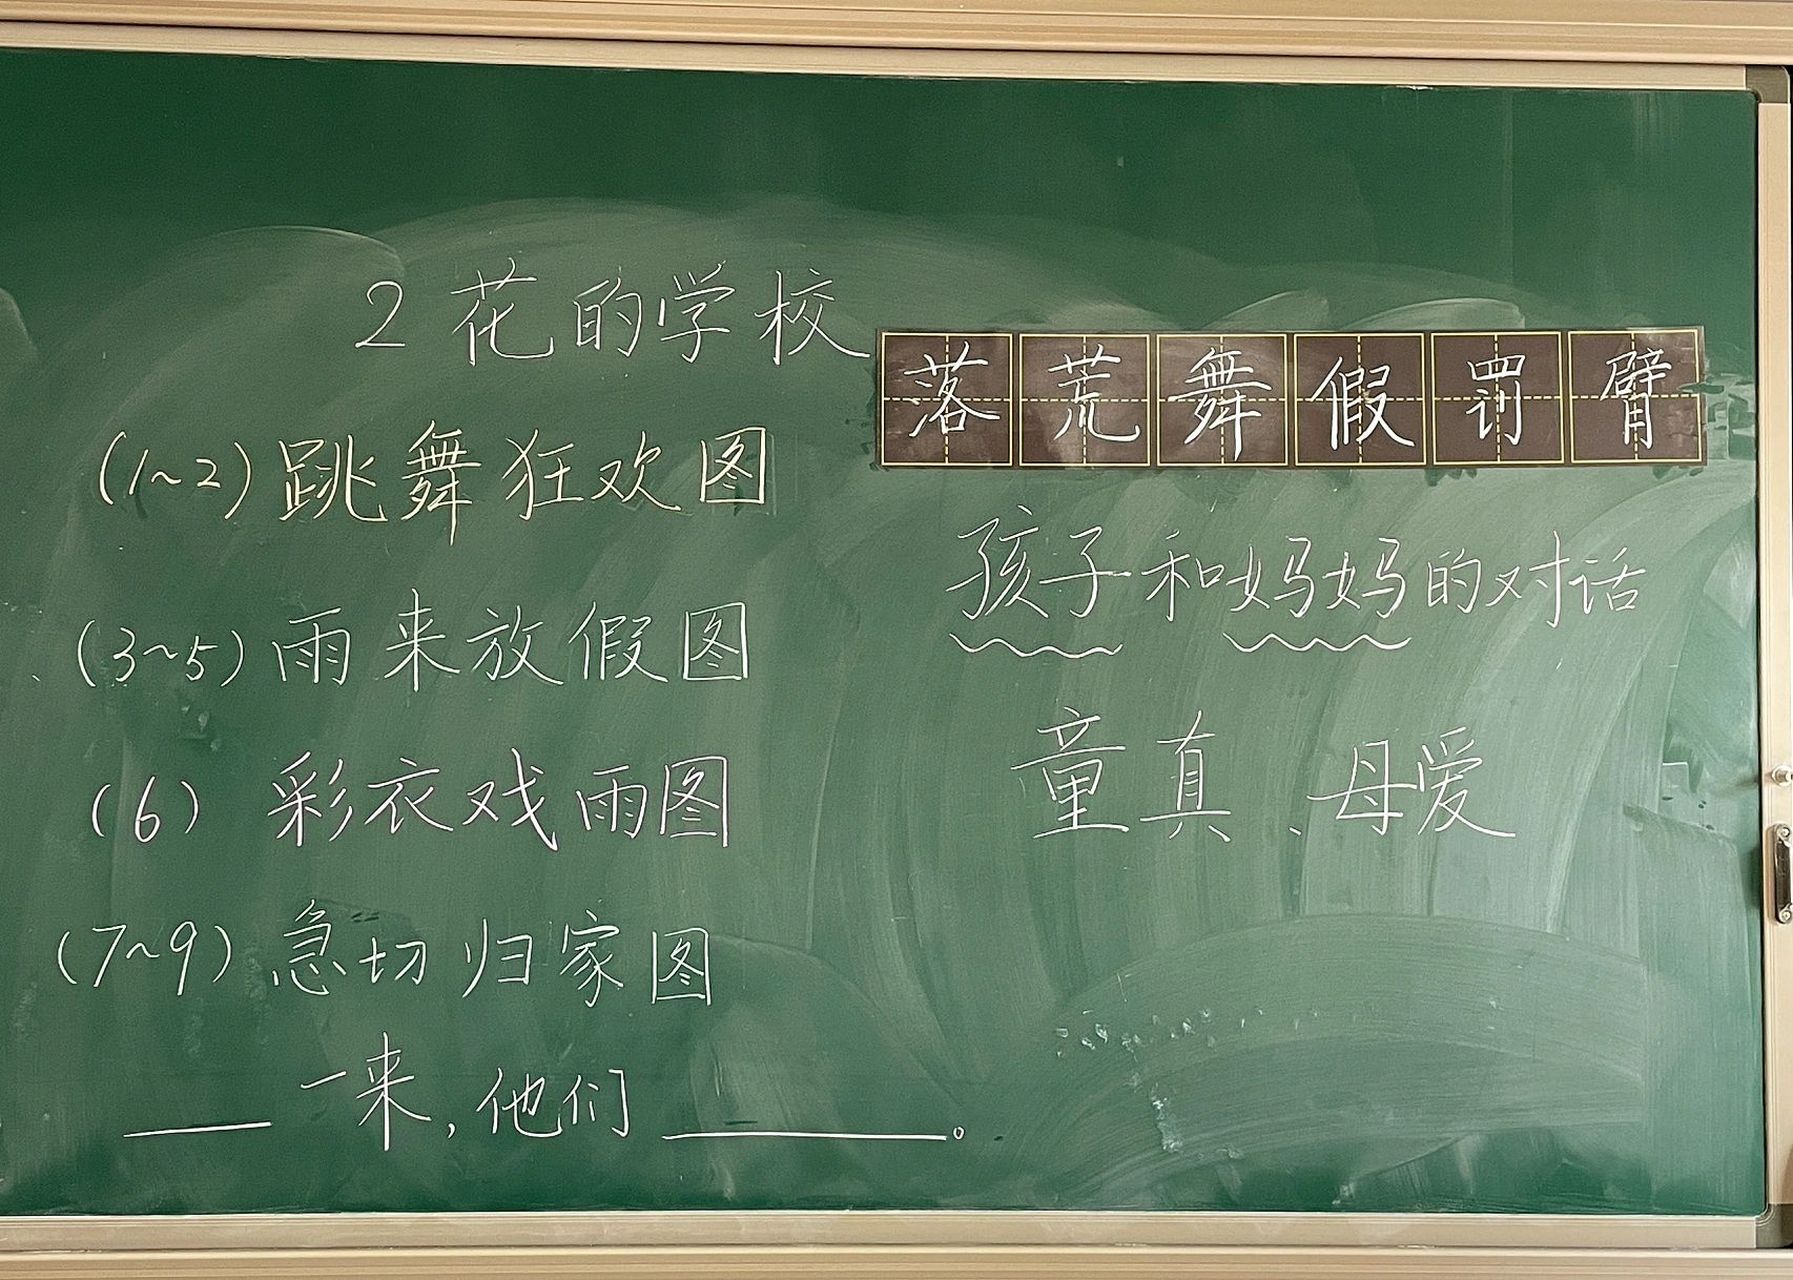 2 花的学校
落荒舞假罚臂
(1~2)跳舞狂欢图
(3~5)雨来放假图
(6) 彩衣戏雨图
(7~9)急切归家图
____一来,他们________。
孩子和妈妈的对话
童真、母爱